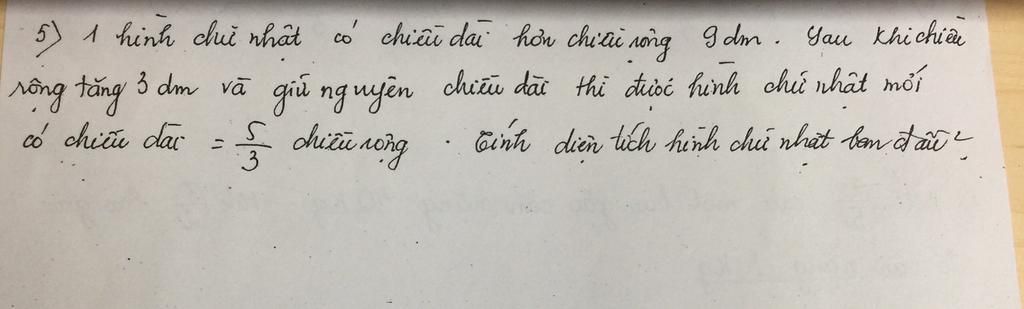 5) 1 hình chữ nhật có chiều dài hơn chiều rộng 9 dm. Sau khi chiều
rộng tăng 3 dm và giữ nguyên chiều dài thì được hình chữ nhật mới
có chiều dài = 5/3 chiều rộng. Tính diện tích hình chữ nhật ban đầu?